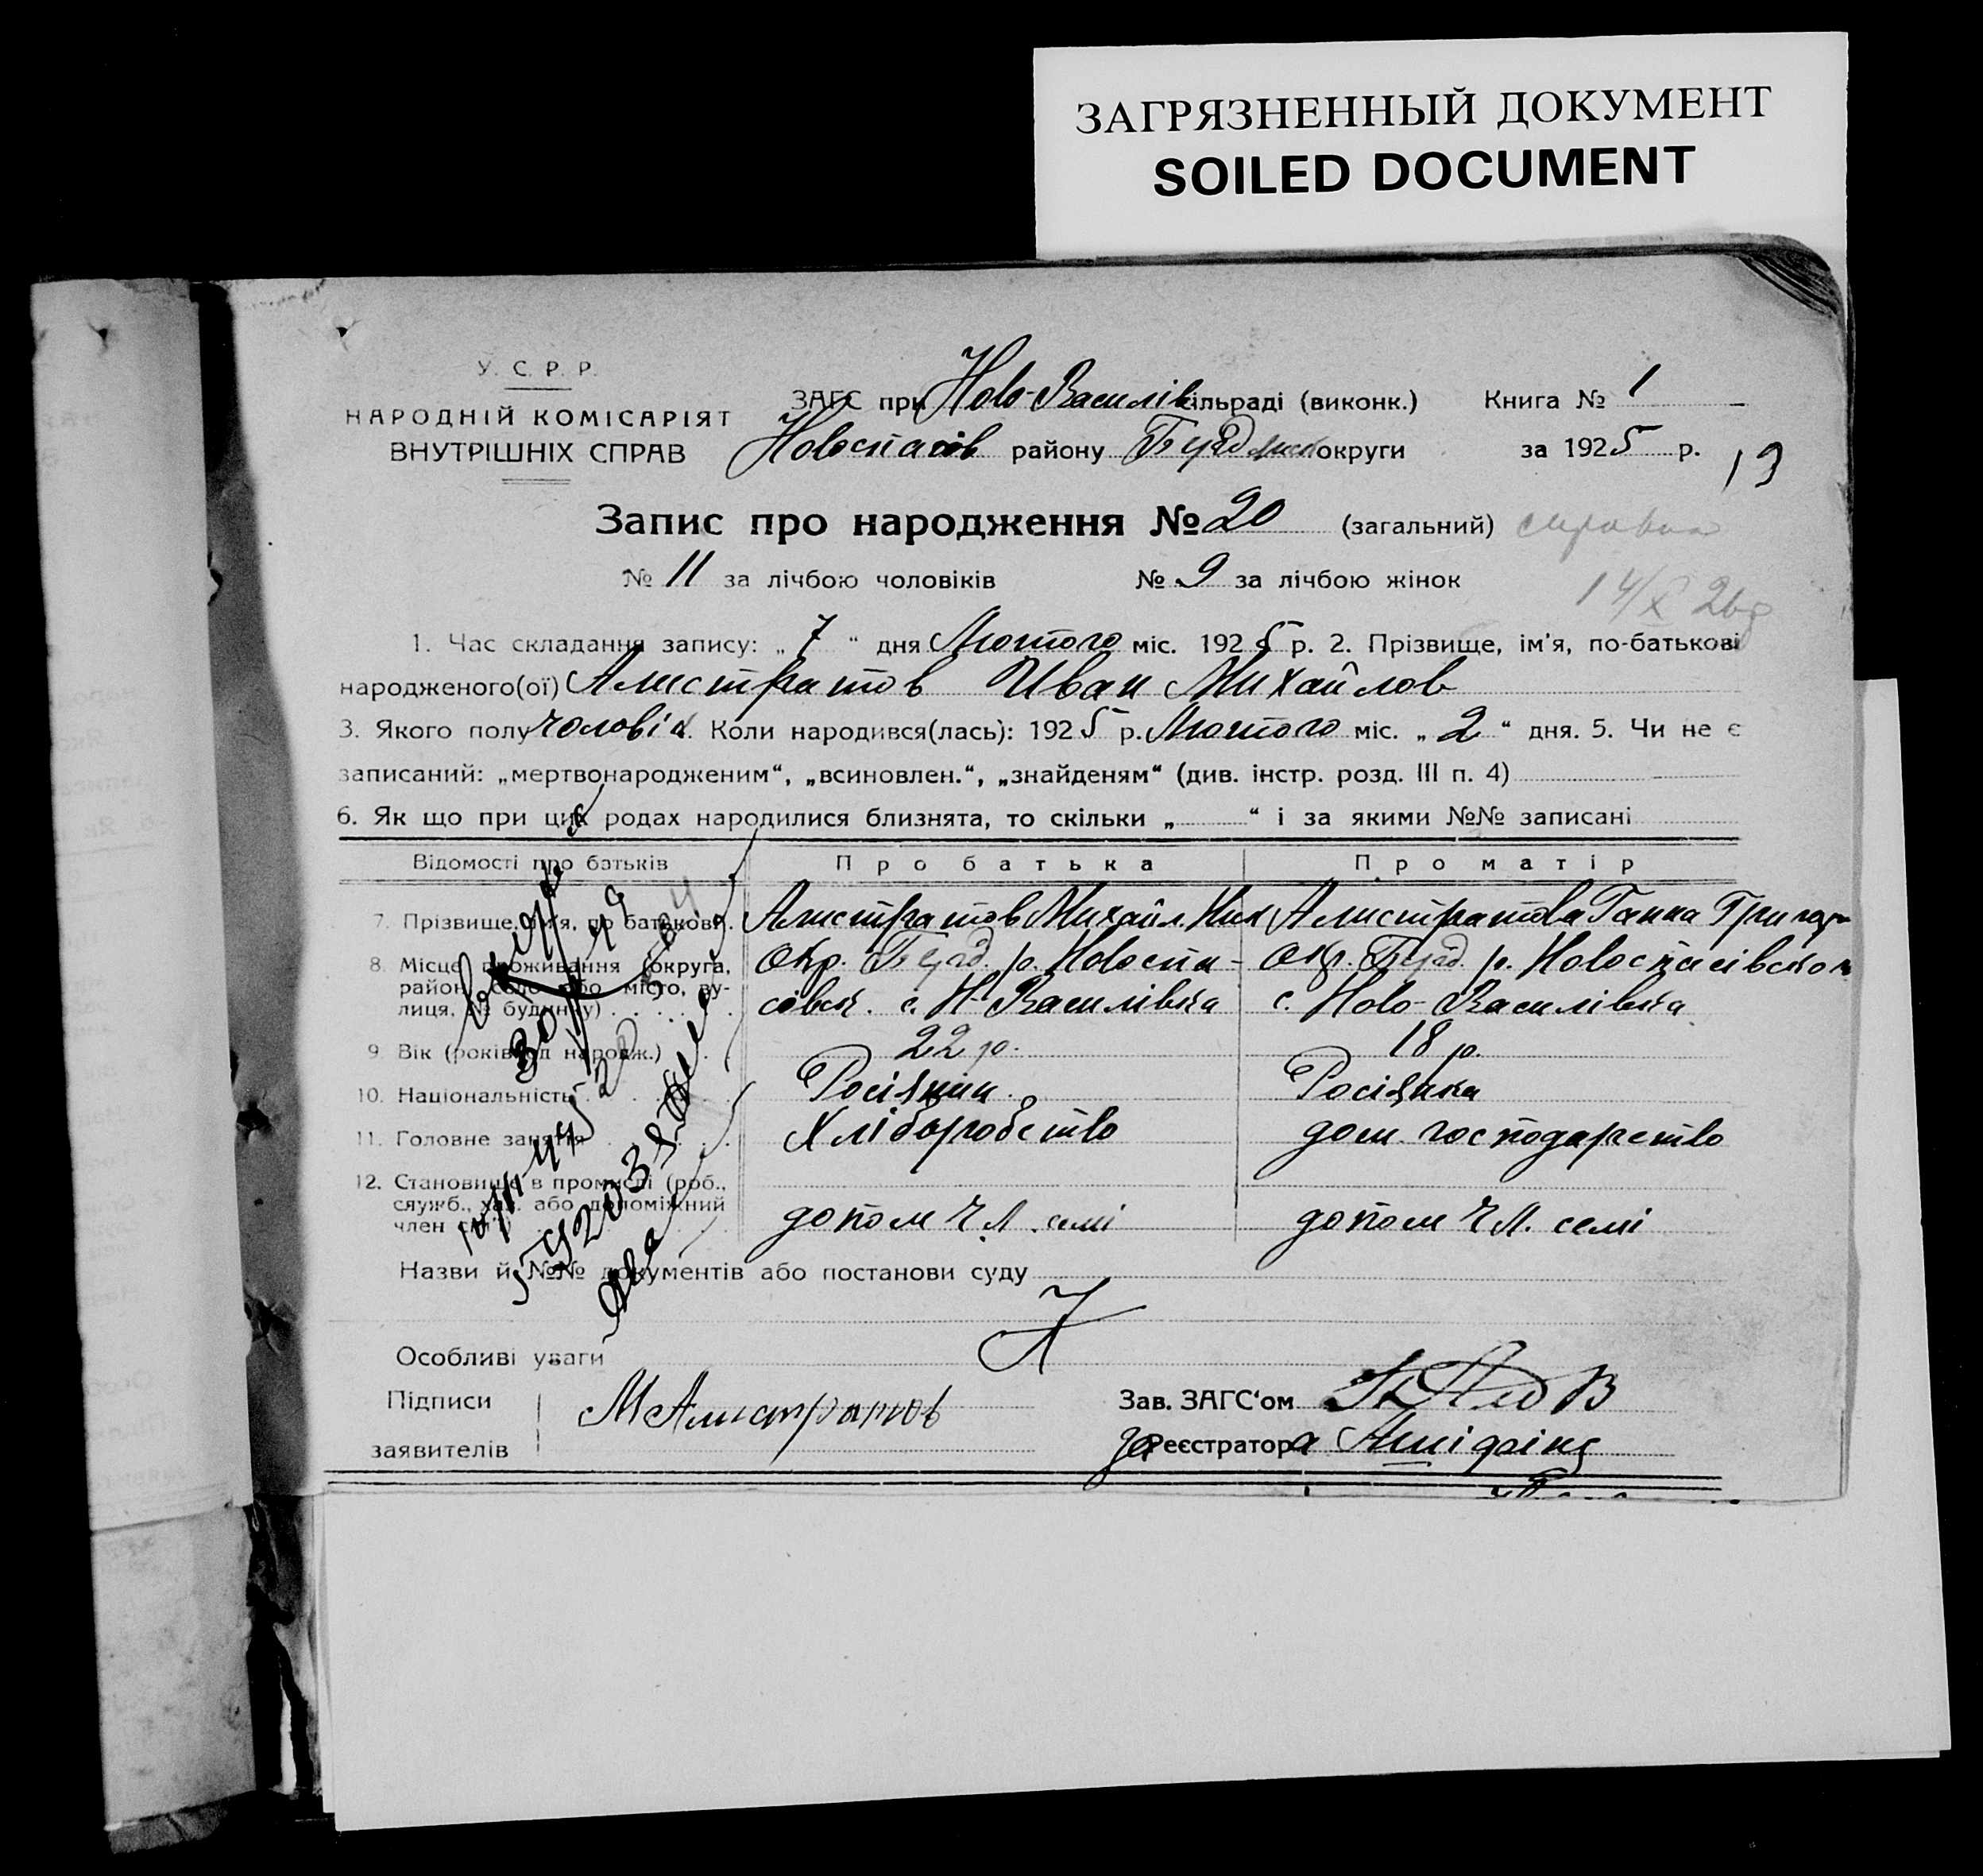 ЗАГРЯЗНЕННЫЙ ДОКУМЕНТ
SOILED DOCUMENT
У. С. Р. Р.
НАРОДНІЙ КОМІСАРІЯТ
ВНУТРІШНІХ СПРАВ
ЗАГС при Ново-Василів сільраді (виконк.) Книга № 1
Новоспасів району Бердянськ округи за 1925 р.
13
Запис про народження № 20 (загальний) справка
№ 11 за лічбою чоловіків № 9 за лічбою жінок
14/X 26
1. Час складання запису: „ 7 “ дня Лютого міс. 1925 р. 2. Прізвище, ім'я, по-батькові
народженого(ої) Алистратов Иван Михайлов
3. Якого полу чоловік. Коли народився(лась): 1925 р. Лютого міс. „ 2 “ дня. 5. Чи не є
записаний: „мертвонародженим“, „всиновлен.“, „знайденям“ (див. інстр. розд. III п. 4)
6. Як що при цих родах народилися близнята, то скільки „ “ і за якими №№ записані
Відомості про батьків Про батька Про матір
7. Прізвище, ім'я, по батькові. Алистратов Михайл. Ник Алистратова Ганна Григор
8. Місце проживання (округа, район, село або місто, вулиця, № будинку)
окр. Берд. р. Новоспа-
совск. с. Н-Василівка
окр. Берд. р. Новоспасівського
с. Ново-Василівка
9. Вік (років од народж.) 22 р. 18 р.
10. Національність Росіянин Росіянка
11. Головне заняття Хліборобство дом. господарство
12. Становище в промислі (роб., служб., хаз. або допоміжний член сім'ї) допом чл. семі допом чл. семі
Назви й №№ документів або постанови суду
Особливі уваги
Підписи
заявителів
МАлистратов
Зав. ЗАГС'ом
за Реєстратора